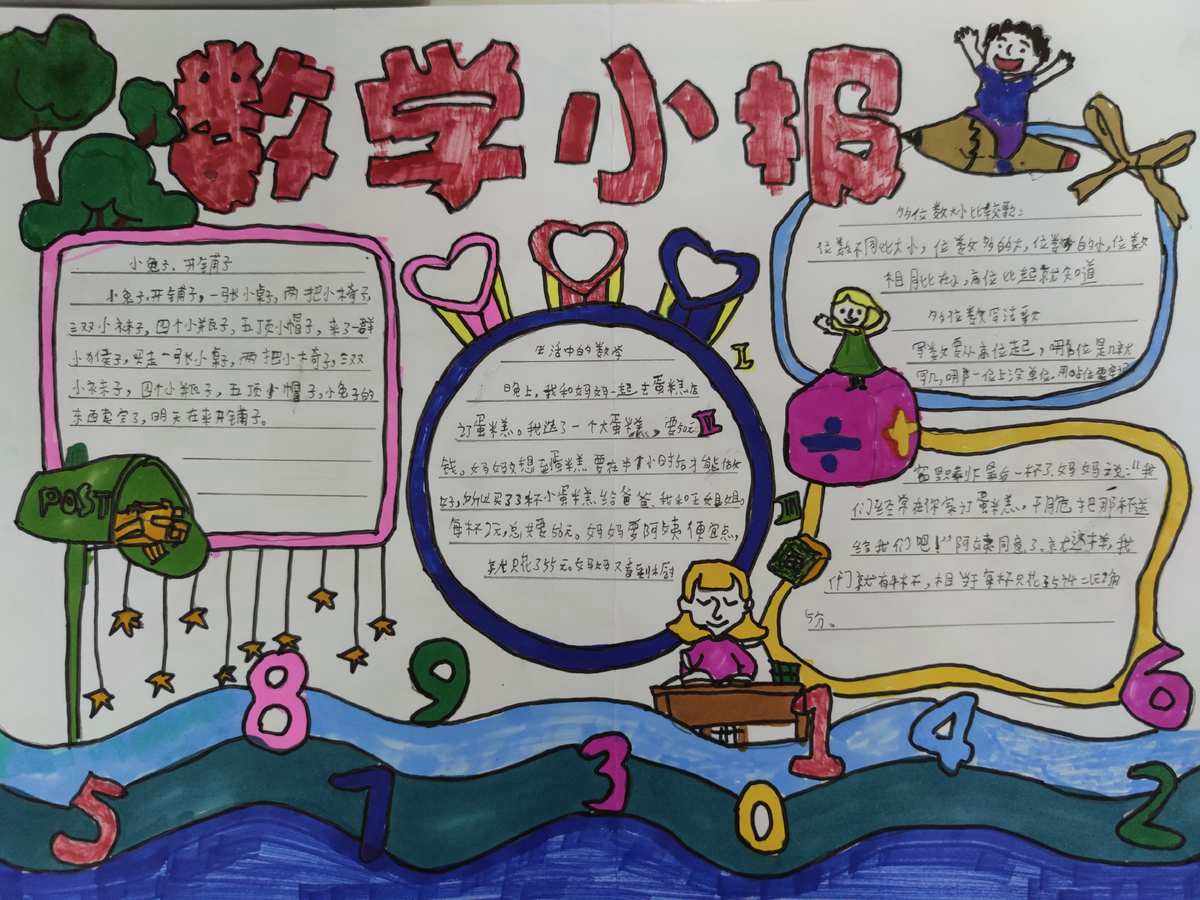 数学小报
小兔子,开铺子
小兔子,开铺子,一张小桌子,两把小椅子,
三双小袜子,四个小瓶子,五顶小帽子,来了一群
小猴子,买走一张小桌子,两把小椅子,三双
小袜子,四个小瓶子,五顶小帽子,小兔子的
东西卖完了,明天在来开铺子。
POST
生活中的数学
晚上,我和妈妈一起去蛋糕店
订蛋糕。我选了一个大蛋糕,要50元
钱。妈妈想到蛋糕要在半个小时后才能做
好,所以买了3杯小蛋糕给爸爸、我和王姐姐,
每杯2元,总共要56元。妈妈要阿姨便宜点,
就只花了55元。妈妈又看到厨
I
II
III
多位数大小比较歌:
位数不同比大小,位数多的大,位数少的小,位数
相同比大小,高位比起就知道
多位数写法歌
写数要从高位起,哪位是几就
写几,哪一位上没单位,用0占位要牢记
÷
+
最后一杯了,妈妈说:“我
们经常在你家订蛋糕。干脆把那杯送
给我们吧!”阿姨同意了,就这样,我
们就有4杯,相当于每杯只花了5÷4=1元2角
5分。
8
9
6
1
4
5
7
3
0
2